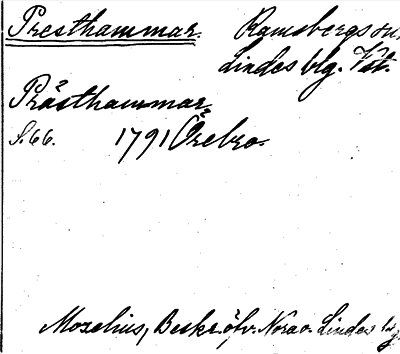 Presthammar. Ramsbergs sn,
Lindes blg. Vst.
Prästhammar,
S. 66. 1791 Örebro.
Mozelius, Beskr. öfv. Nora o. Lindes blg.